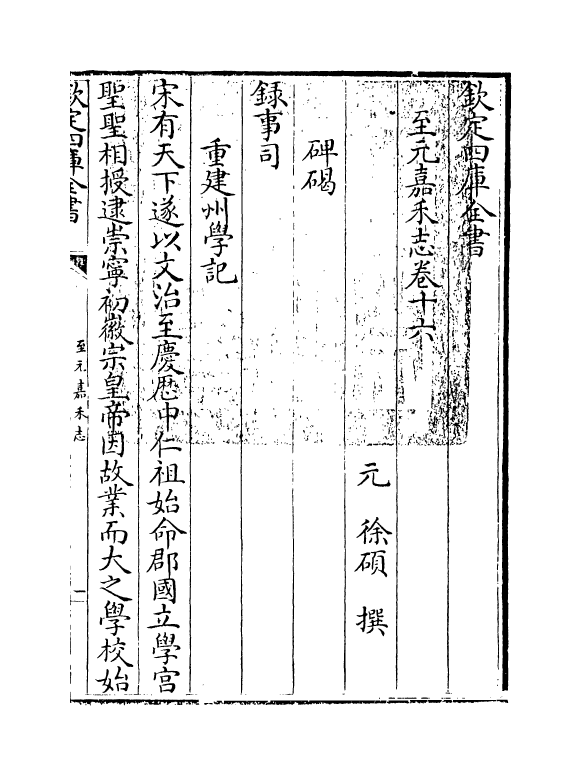 欽定四庫全書
至元嘉禾志卷十六
元 徐碩 撰
碑碣
録事司
重建州學記
宋有天下遂以文治至慶歴中仁祖始命郡國立學宫
聖聖相授逮崇寧初徽宗皇帝因故業而大之學校始
欽定四庫全書
至元嘉禾志
一